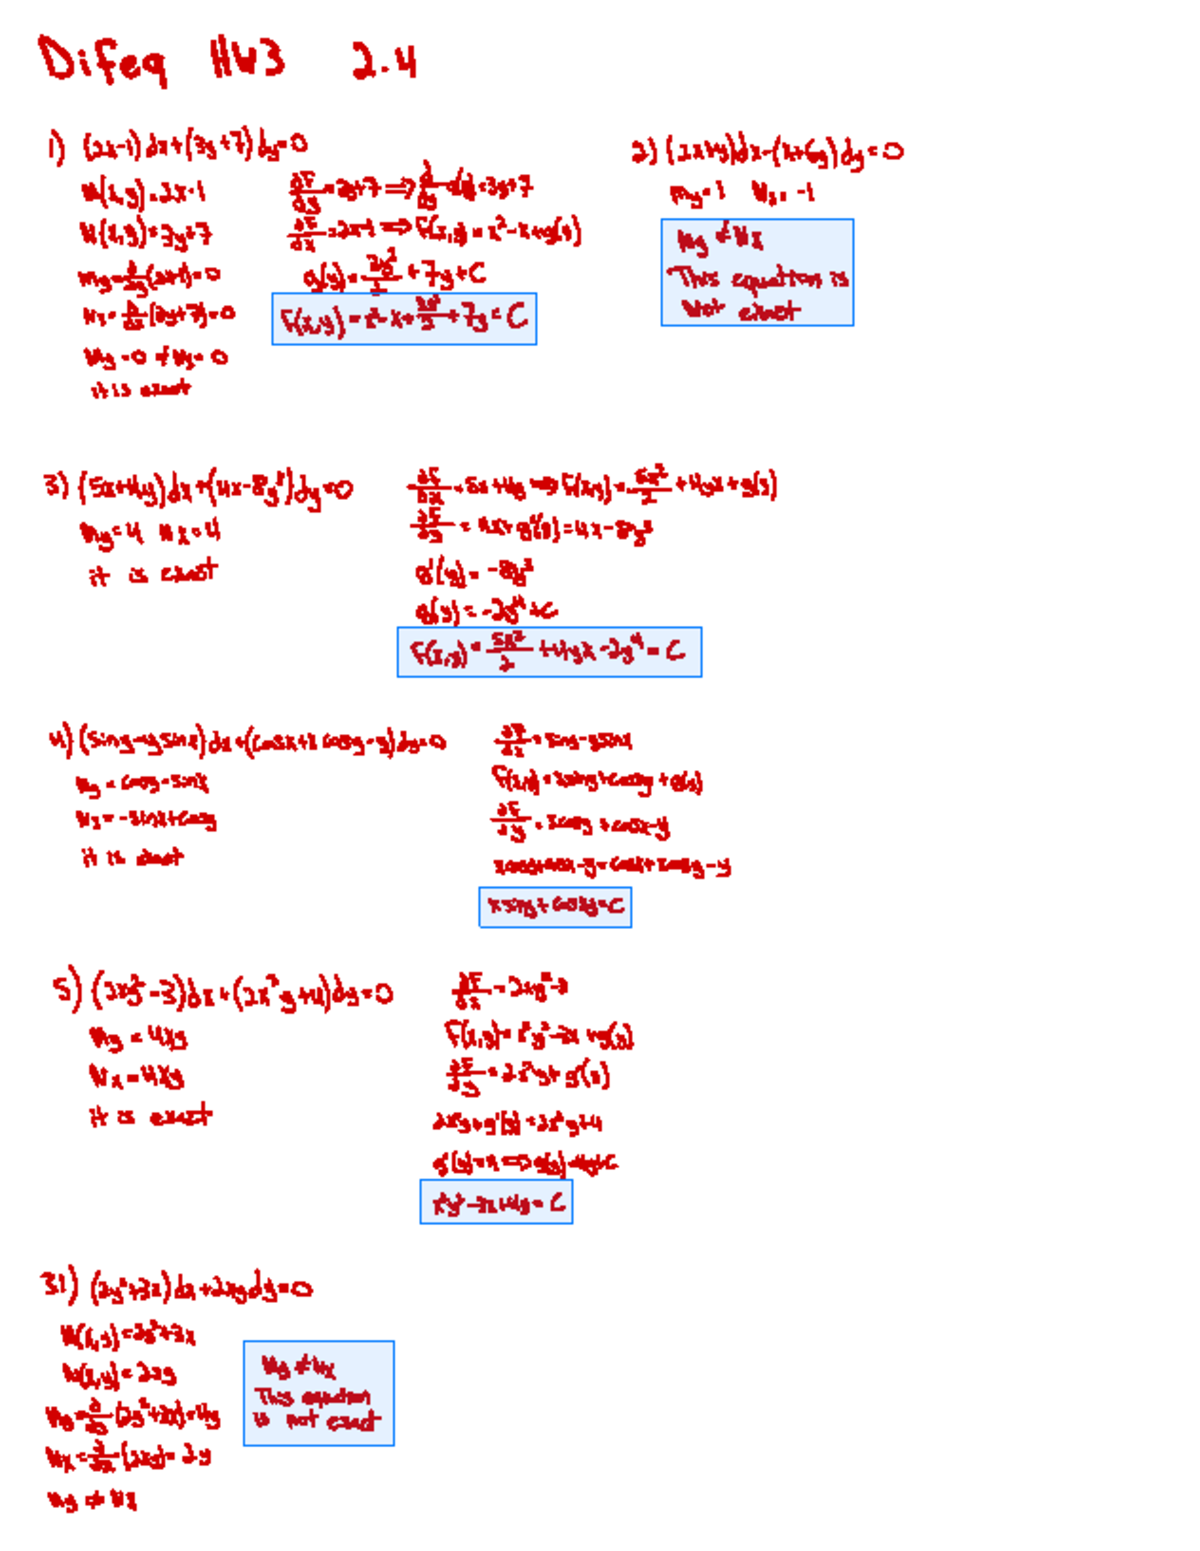 Difeq HW3 2.4
1) (2x-1)dx+(3y+7)dy=0
M(x,y)=2x-1
N(x,y)=3y+7
My=∂/∂y(2x-1)=0
Nx=∂/∂x(3y+7)=0
My=0 Nx=0
it is exact
∂F/∂y=3y+7 ⇒ =3y+7
∂F/∂x=2x-1 ⇒ F(x,y)=x²-x+g(y)
g(y)=3y²/2+7y+C
F(x,y)=x²-x+3y²/2+7y=C
2) (2x+y)dx-(x+6y)dy=0
My=1 Nx=-1
My≠Nx
This equation is
Not exact
3) (5x+4y)dx+(4x-8y³)dy=0
My=4 Nx=4
it is exact
∂F/∂x=5x+4y ⇒ F(x,y)=5x²/2+4yx+g(y)
∂F/∂y=4x+g'(y)=4x-8y³
g'(y)=-8y³
g(y)=-2y⁴+C
F(x,y)=5x²/2+4yx-2y⁴=C
4) (siny-ysinx)dx+(cosx+xcosy-y)dy=0
My=cosy-sinx
Nx=-sinx+cosy
it is exact
∂F/∂x=siny-ysinx
F(x,y)=xsiny+cosxy+g(y)
∂F/∂y=xcosy+cosx-y
xcosy+cosx-y=cosx+xcosy-y
xsiny+cosxy=C
5) (2xy²-3)dx+(2x²y+4)dy=0
My=4xy
Nx=4xy
it is exact
∂F/∂x=2xy²-3
F(x,y)=x²y²-3x+g(y)
∂F/∂y=2x²y+g'(y)
2x²y+g'(y)=2x²y+4
g'(y)=4 ⇒ g(y)=4y+C
x²y²-3x+4y=C
31) (2y²+3x)dx+2xydy=0
M(x,y)=2y²+3x
N(x,y)=2xy
My=∂/∂y(2y²+3x)=4y
Nx=∂/∂x(2xy)=2y
My≠Nx
My≠Nx
This equation
is not exact